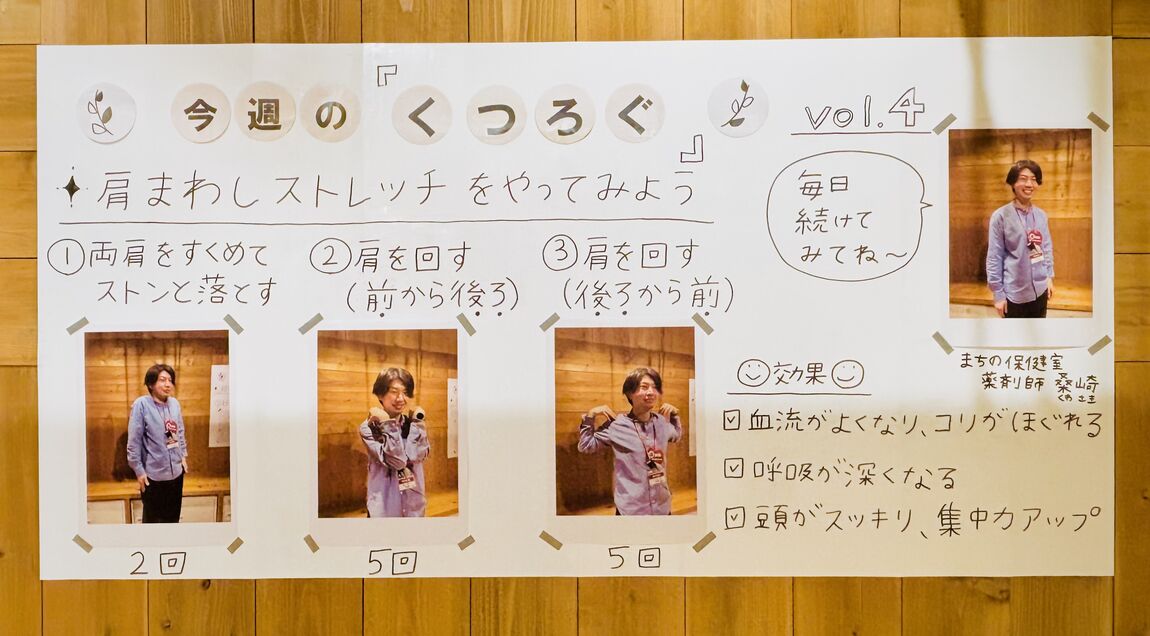 今週の『くつろぐ』
vol.4
肩まわしストレッチをやってみよう
毎日
続けて
みてね〜
①両肩をすくめて
ストンと落とす
2回
②肩を回す
(前から後ろ)
5回
③肩を回す
(後ろから前)
5回
まちの保健室
薬剤師 桑崎
くわ さき
効果
☑血流がよくなり、コリがほぐれる
☑呼吸が深くなる
☑頭がスッキリ、集中力アップ